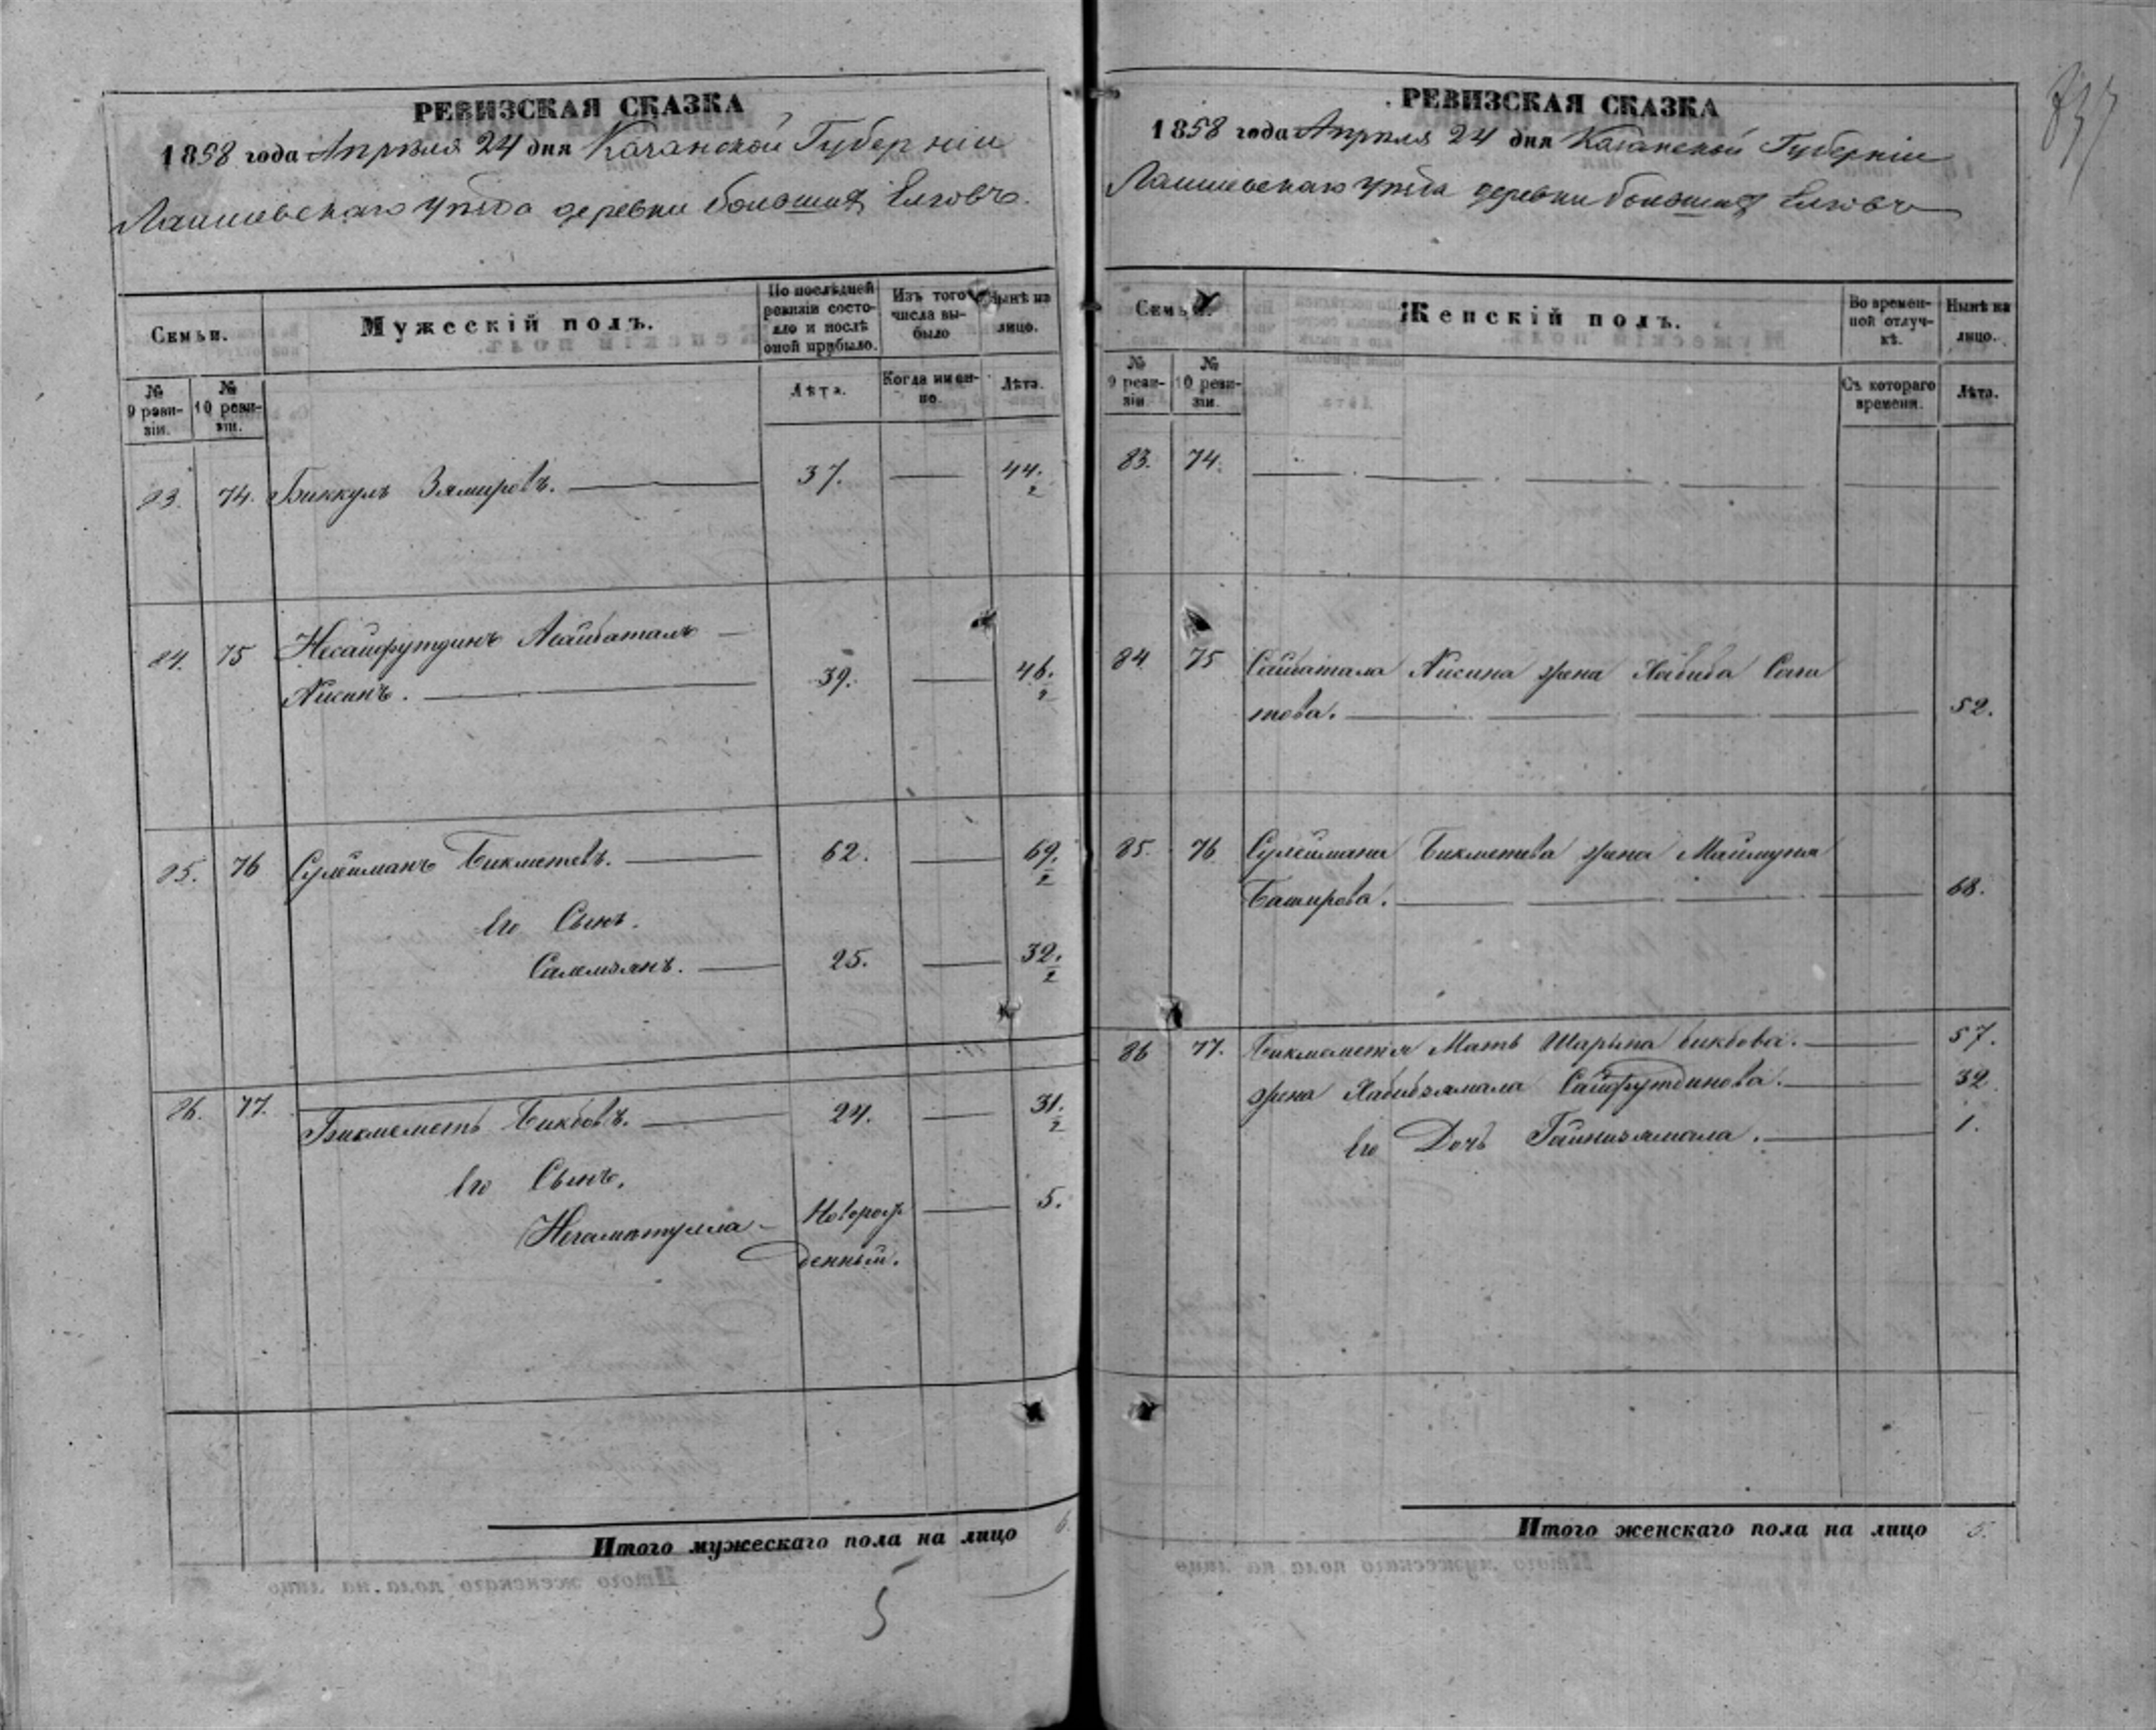 РЕВИЗСКАЯ СКАЗКА
1858 года Апрѣля 24 дня Казанской Губерніи
Лаишевскаго уѣзда деревни большихъ Елговъ.
Семьи.
Мужескій полъ.
По послѣдней ревизіи состояло и послѣ оной прибыло.
Изъ того числа выбыло
Нынѣ на лицо.
№ 9 ревизіи.
№ 10 ревизіи.
Лѣта.
Когда именно.
Лѣта.
83. 74. Биккулъ Зямировъ. 37. 44.
2
84. 75 Несайфутдинъ
Аисинъ. 39. 46.
2
85. 76 Сулейманъ Бикметевъ. 62. 69.
2
Его Сынъ.
Салемзянъ. 25. 32.
2
86. 77. Бикмеметь Бикбовъ. 24. 31.
2
Его Сынъ,
Негаматулла Новорож 5.
денный.
Итого мужескаго пола на лицо 6.
5
РЕВИЗСКАЯ СКАЗКА
1858 года Апрѣля 24 дня Казанской Губерніи
Лаишевскаго уѣзда деревни большихъ Елговъ
Семьи.
Женскій полъ.
Во временной отлучкѣ.
Нынѣ на лицо.
№ 9 ревизіи.
№ 10 ревизіи.
Съ котораго времени.
Лѣта.
83. 74.
84 75 Сайбатала Аисина жена Хабиба Саги
това. 52.
85. 76 Сулеймана Бикметева жена Маймуня
Баширова. 68.
86 77. Бикмеметя Мать Шарыпа бикбова. 57.
жена Хабибзямала Сайфутдинова. 32
Его Дочь Гайнизямала. 1.
Итого женскаго пола на лицо 5.